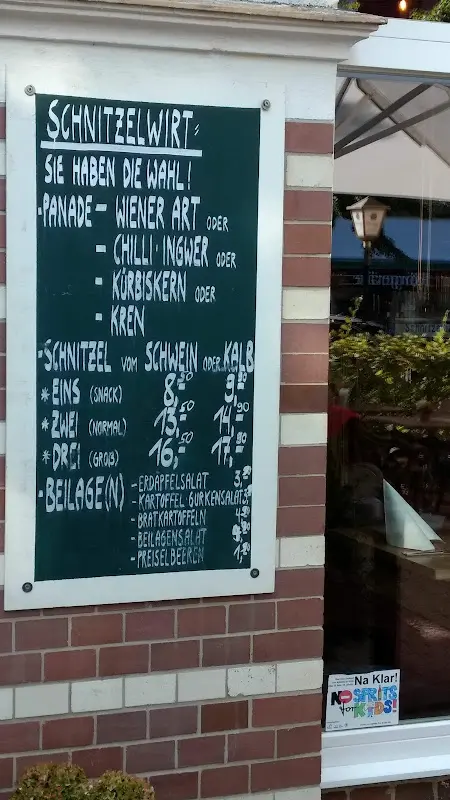 SCHNITZELWIRT:
SIE HABEN DIE WAHL!
-PANADE - WIENER ART ODER
- CHILLI-INGWER ODER
- KÜRBISKERN ODER
- KREN
-SCHNITZEL VOM SCHWEIN ODER KALB
* EINS (SNACK) 8,50 9,90
* ZWEI (NORMAL) 13,50 14,90
* DREI (GROß) 16,50 17,90
-BEILAGE(N) - ERDÄPFELSALAT
- KARTOFFEL-GURKENSALAT
- BRATKARTOFFELN
- BEILAGENSALAT
- PREISELBEEREN
Na Klar!
NO SPIRITS
for KIDS!